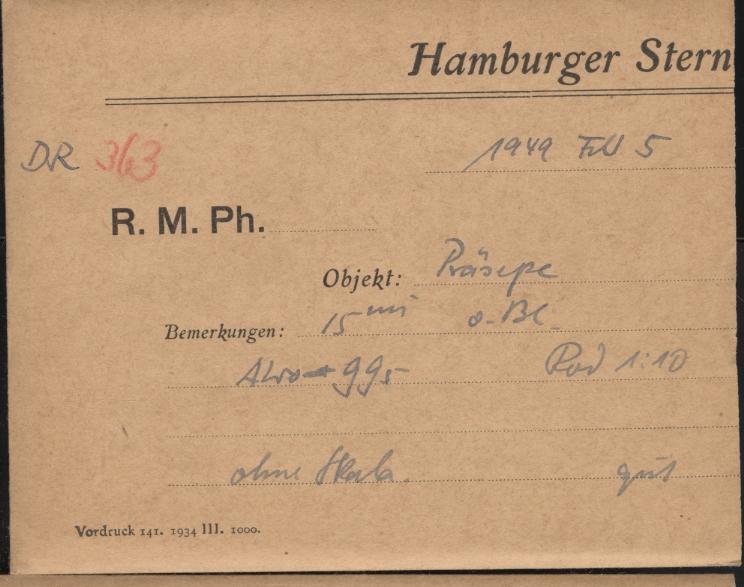 Hamburger Stern
DR 363
1949 Feb 5
R. M. Ph.
Objekt: Präsepe
Bemerkungen: 15 min o. Bl.
995 Rod 1:10
ohne Skala. gut
Vordruck 141. 1934 III. 1000.